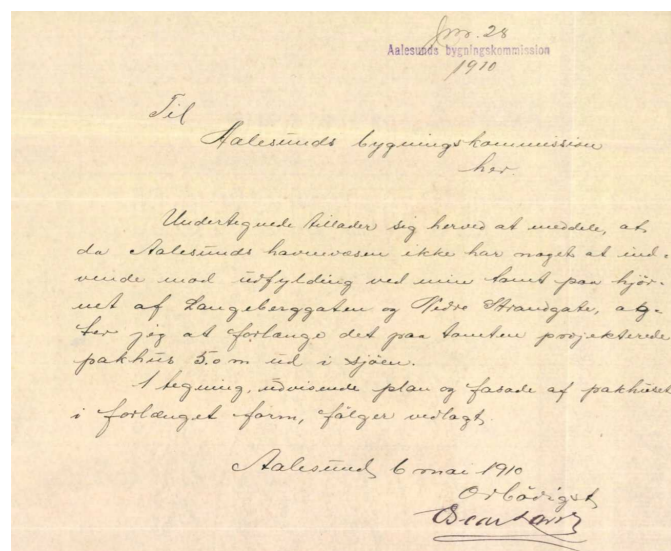 Jnr. 28
Aalesunds bygningskommission
1910
Til
Aalesunds bygningskommission
her.
Undertegnede tillader sig herved at meddele, at
da Aalesunds havnevæsen ikke har noget at ind-
vende mod udfylding ved min tomt paa hjør-
net af Langeberggaten og Nedre Strandgate, ag-
ter jeg at forlænge det paa tomten projekterede
pakhus 5.0 m ud i sjøen.
1 tegning, udvisende plan og fasade af pakhuset
i forlænget form, følger vedlagt.
Aalesund, 6 mai 1910
Ærbødigst